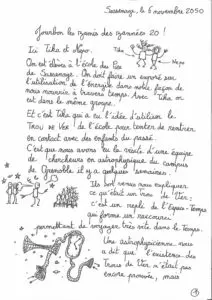 Sassenage, le 5 novembre 2050
Jourbon les Zamis des Zannées 20 !
Ici Tika et Népo.
Tika
Népo
On est élèves à l'école des Pies
de Sassenage. On doit faire un exposé sur
l'utilisation de l'énergie dans notre façon de
nous nourrir à travers temps. Avec Tika on est
dans le même groupe.
Et c'est Tika qui a eu l'idée d'utiliser le
Trou de Ver de l'école pour tenter de rentrer
en contact avec des enfants du passé.
C'est que nous avons eu la visite d'une équipe
de chercheurs en astrophysique du campus
de Grenoble il y a quelques semaines.
Ils sont venus nous expliquer
ce qu'était un Trou de Ver :
c'est un repli de l'Espace-Temps
qui forme un raccourci
permettant de voyager très vite dans le Temps.
Une astrophysicienne nous
a dit que l'existence des
Trous de Ver n'était pas
encore prouvée, mais
1